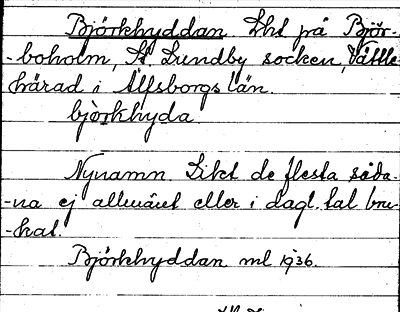 Björkhyddan Lht på Björ-
-boholm, St. Lundby socken, Vättle
härad i Älfsborgs län.
bjòrkhyda.
Nynamn. Likt de flesta såda-
-na ej allmänt eller i dagl. tal bru-
-kat.
Björkhyddan ml 1936.